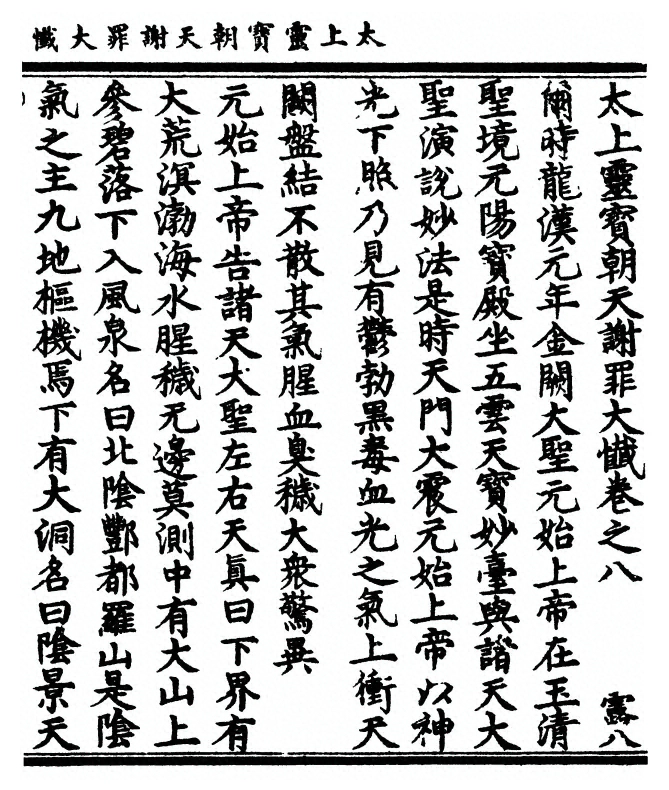 太上靈寶朝天謝罪大懺
太上靈寶朝天謝罪大懺卷之八 露八
爾時龍漢元年金闕大聖元始上帝在玉清
聖境元陽寶殿坐五雲天寶妙臺與諸天大
聖演說妙法是時天門大震元始上帝以神
光下照乃見有鬱勃黑毒血光之氣上衝天
關盤結不散其氣腥血臭穢大衆驚異
元始上帝告諸天大聖左右天真曰下界有
大荒溟渤海水腥穢无邊莫測中有大山上
參碧落下入風泉名曰北陰酆都羅山是陰
氣之主九地樞機焉下有大洞名曰陰景天